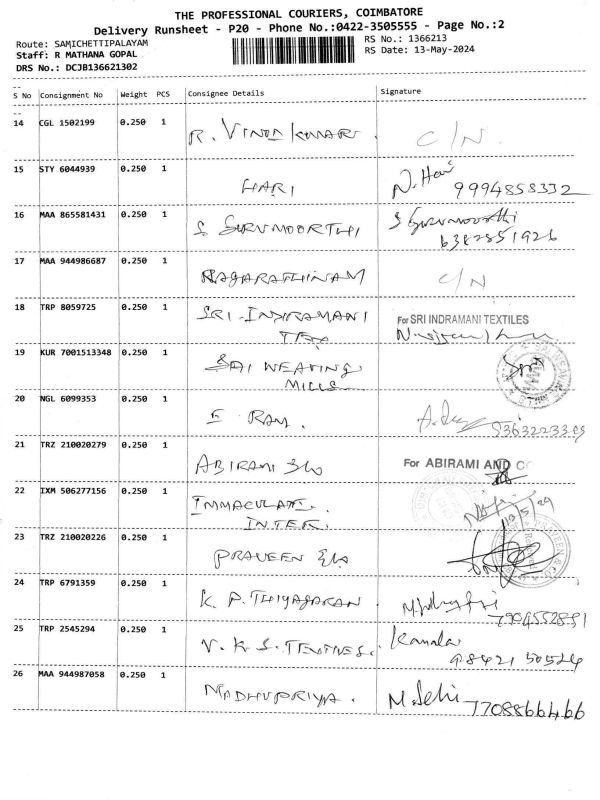 THE PROFESSIONAL COURIERS, COIMBATORE
Delivery Runsheet - P20 - Phone No.:0422-3505555 - Page No.:2
Route: SAMICHETTIPALAYAM
RS No.: 1366213
Staff: R MATHANA GOPAL
RS Date: 13-May-2024
DRS No.: DCJB136621302
S No Consignment No Weight PCS Consignee Details Signature
14 CGL 1502199 0.250 1 R. VINOD KUMAR. C/N.
15 STY 6044939 0.250 1 HARI N. Hari
9994858332
16 MAA 865581431 0.250 1 S GURUMOORTHI S Gurumoorthi
6382851926
17 MAA 944986687 0.250 1 NAGARATHINAM C/N
18 TRP 8059725 0.250 1 SRI. INDIRAMANI For SRI INDRAMANI TEXTILES
TEX
19 KUR 7001513348 0.250 1 SAI WEAVING
MILLS
20 NGL 6099353 0.250 1 E RAM.
21 TRZ 210020279 0.250 1 ABIRAMI &Co For ABIRAMI AND CO
22 IXM 506277156 0.250 1 IMMACULATE.
INTER. 13/5/24
23 TRZ 210020226 0.250 1 PRAVEEN &Co
24 TRP 6791359 0.250 1 K. P. THIYAGARAN
7904552891
25 TRP 2545294 0.250 1 V. K. S. TEXTILES. Kamala
98421 50524
26 MAA 944987058 0.250 1 MADHUPRIYA. M. Selvi
7708866466